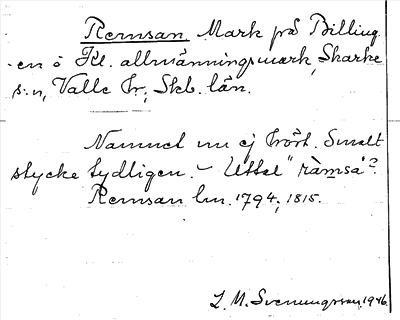 Remsan Mark på Billing
en å Kl. allmänningsmark, Skarke
s:n, Valle hr, Skb. län.
Namnet nu ej hört. Smalt
stycke tydligen. – Uttal "ràmsa"?
Remsan lm. 1794, 1815.
L. M. Svenungsson, 1946.